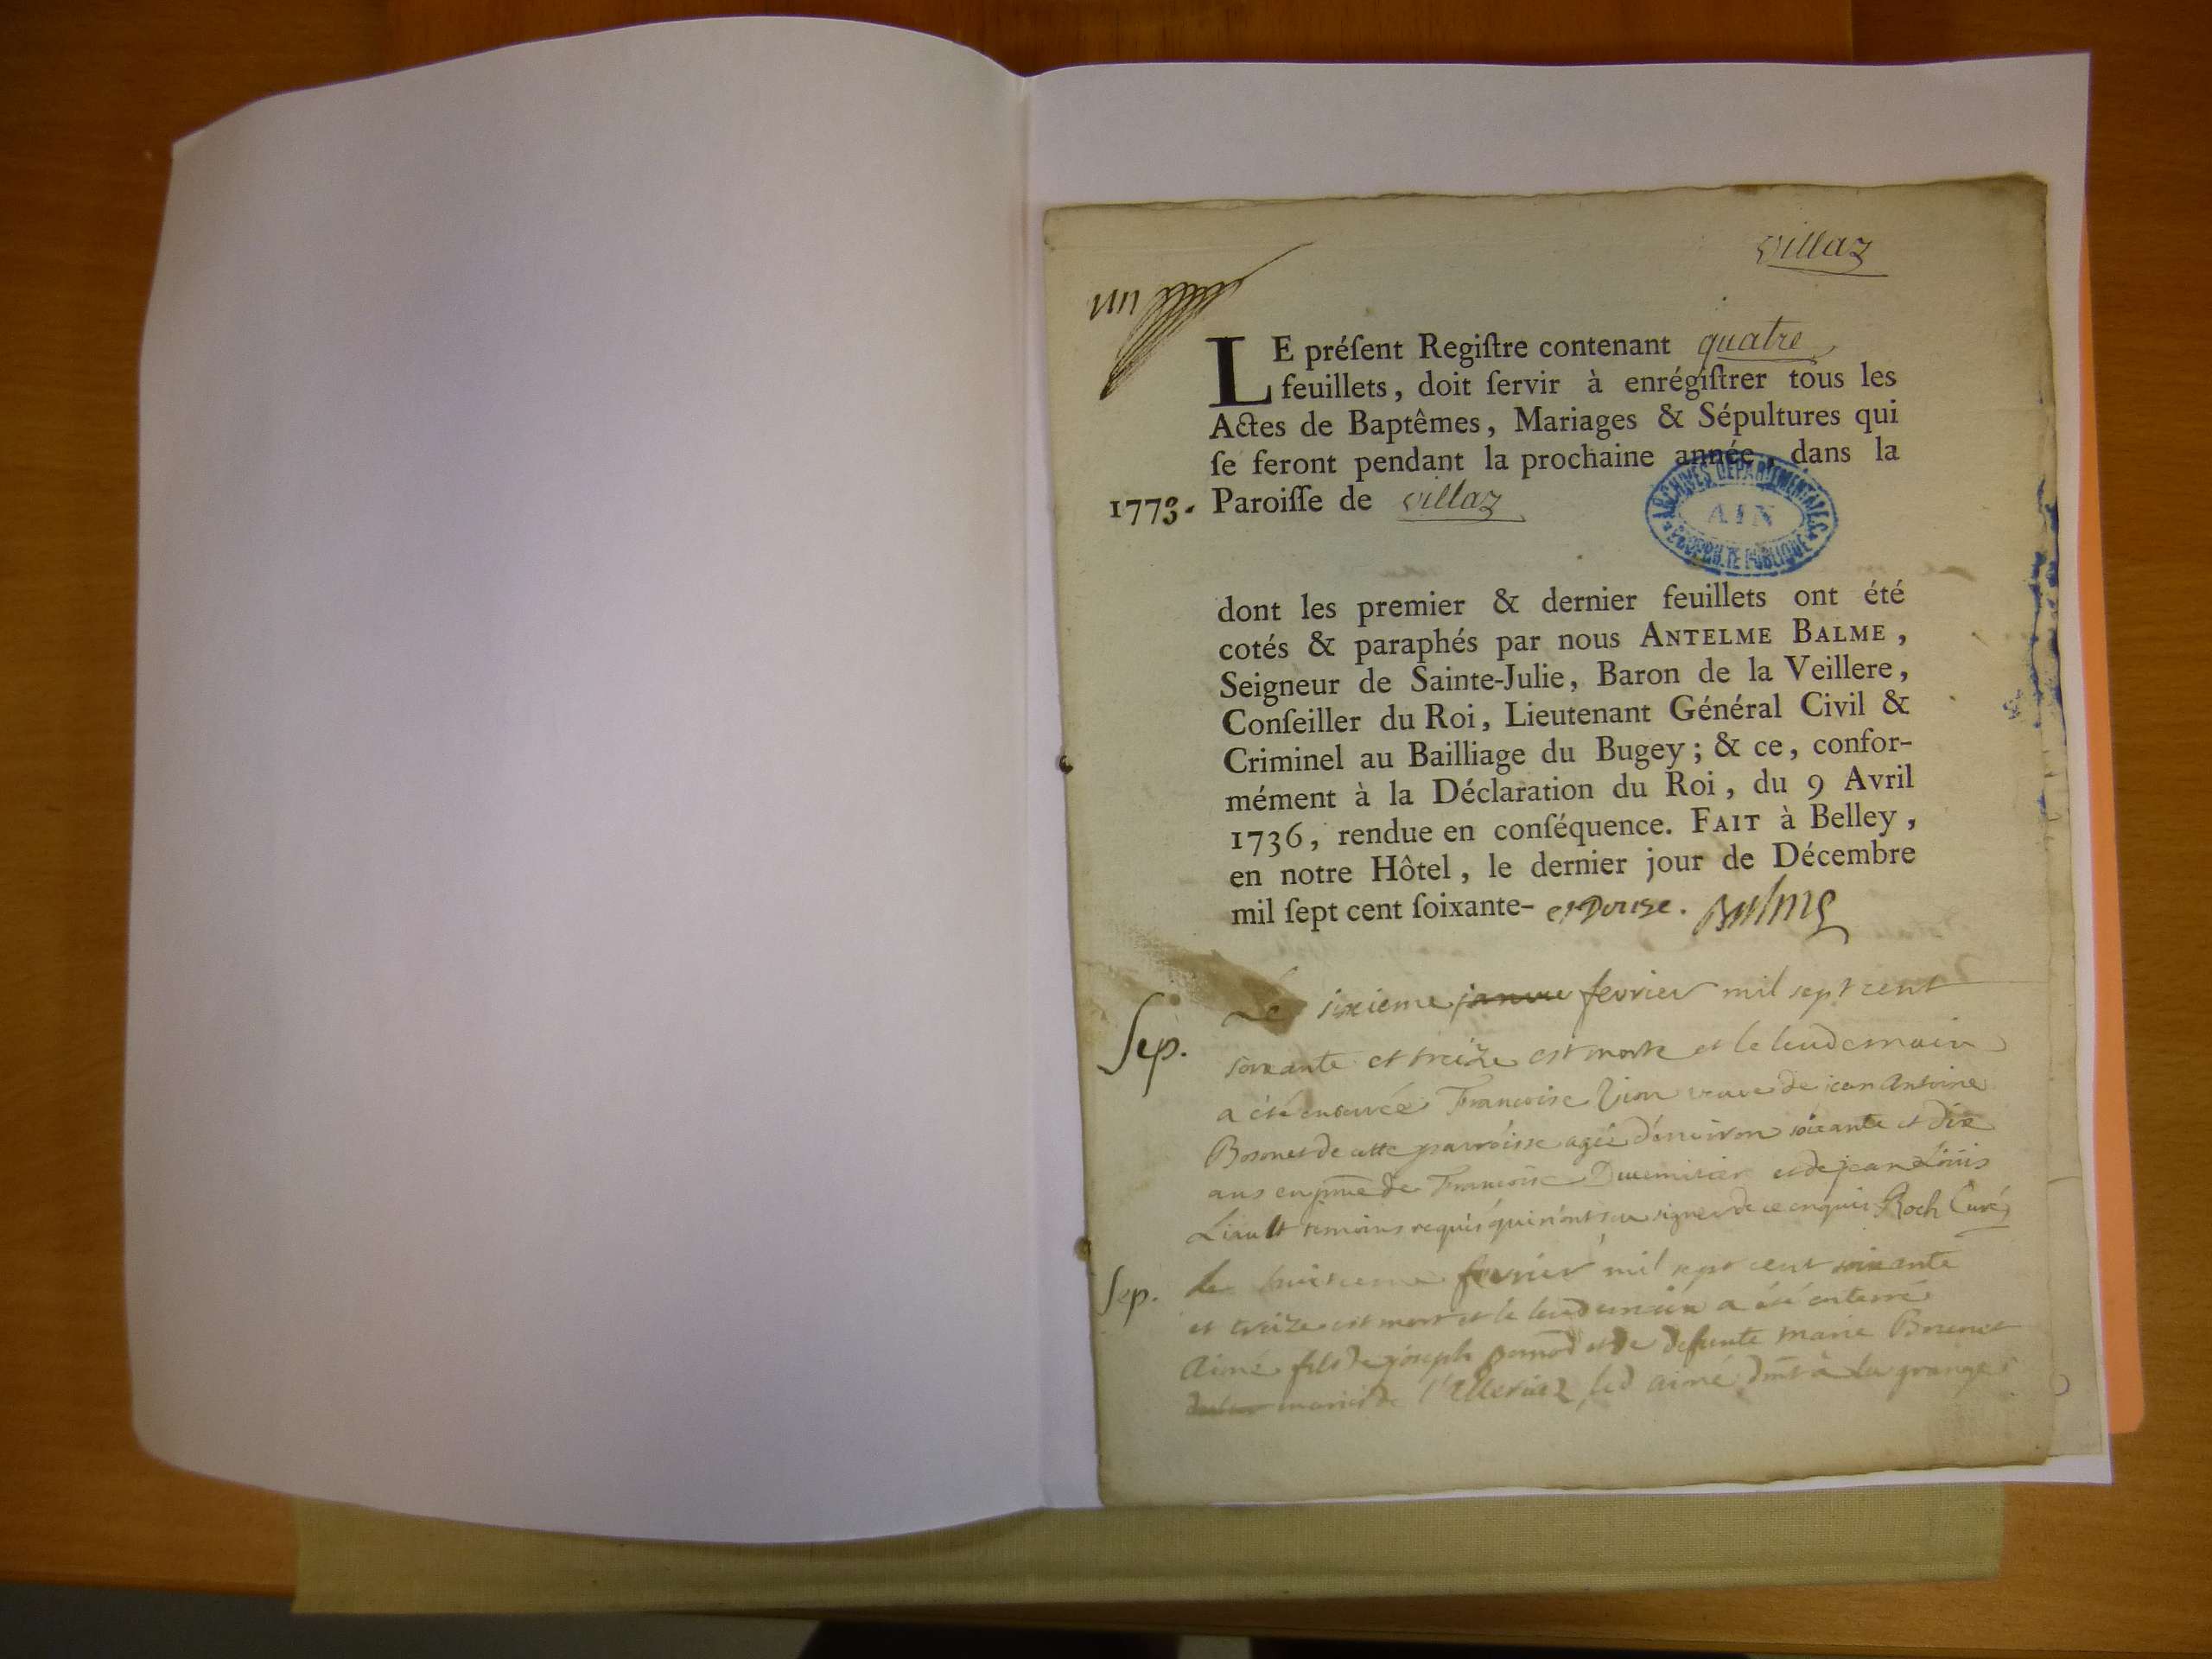 villaz
un
LE préſent Regiſtre contenant quatre
feuillets, doit ſervir à enrégiſtrer tous les
Actes de Baptêmes, Mariages & Sépultures qui
ſe feront pendant la prochaine année, dans la
1773. Paroiſſe de villaz
ARCHIVES DÉPARTEMENTALES
AIN
dont les premier & dernier feuillets ont été
cotés & paraphés par nous ANTELME BALME,
Seigneur de Sainte-Julie, Baron de la Veillere,
Conſeiller du Roi, Lieutenant Général Civil &
Criminel au Bailliage du Bugey; & ce, confor-
mément à la Déclaration du Roi, du 9 Avril
1736, rendue en conſéquence. FAIT à Belley,
en notre Hôtel, le dernier jour de Décembre
mil ſept cent ſoixante- et Douze. Balme
Sep. Le sixieme janvie fevrier mil sept cent
soixante et treize est morte et le lendemain
a été enterrée Francoise Vion veuve de jean Antoine
de cette parroisse agée d'environ soixante et dix
ans en pnce de Francois et de jean Louis
temoins requis qui n'ont sçu signer de ce enquis Roch Curé
Sep. le huitieme fevrier mil sept cent soixante
et treize est mort et le lendemain a été enterré
Aimé fils de joseph et de defunte marie
mariés de led aimé à la grange